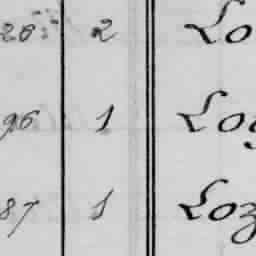 26 2 Lo
96 1 Log
87 1 Loz